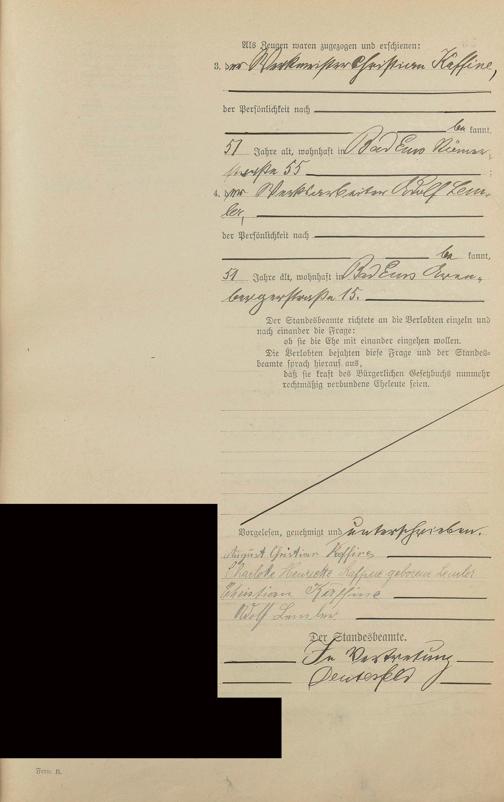 Als Zeugen waren zugezogen und erschienen:
3. der Werkmeister Christian Kaffine,
der Persönlichkeit nach
be kannt,
51 Jahre alt, wohnhaft in Bad Ems Römer-
straße 55 ;
4. der Werksarbeiter Adolf Lem-
ler,
der Persönlichkeit nach
be kannt,
51 Jahre alt, wohnhaft in Bad Ems Aren-
bergerstraße 15.
Der Standesbeamte richtete an die Verlobten einzeln und
nach einander die Frage:
ob sie die Ehe mit einander eingehen wollen.
Die Verlobten bejahten diese Frage und der Standes-
beamte sprach hierauf aus,
daß sie kraft des Bürgerlichen Gesetzbuchs nunmehr
rechtmäßig verbundene Eheleute seien.
Vorgelesen, genehmigt und unterschrieben.
August Christian Kaffine
Charlotte Henriette Kaffine geborene Lemler
Christian Kaffine
Adolf Lemler
Der Standesbeamte.
In Vertretung
Form. B.